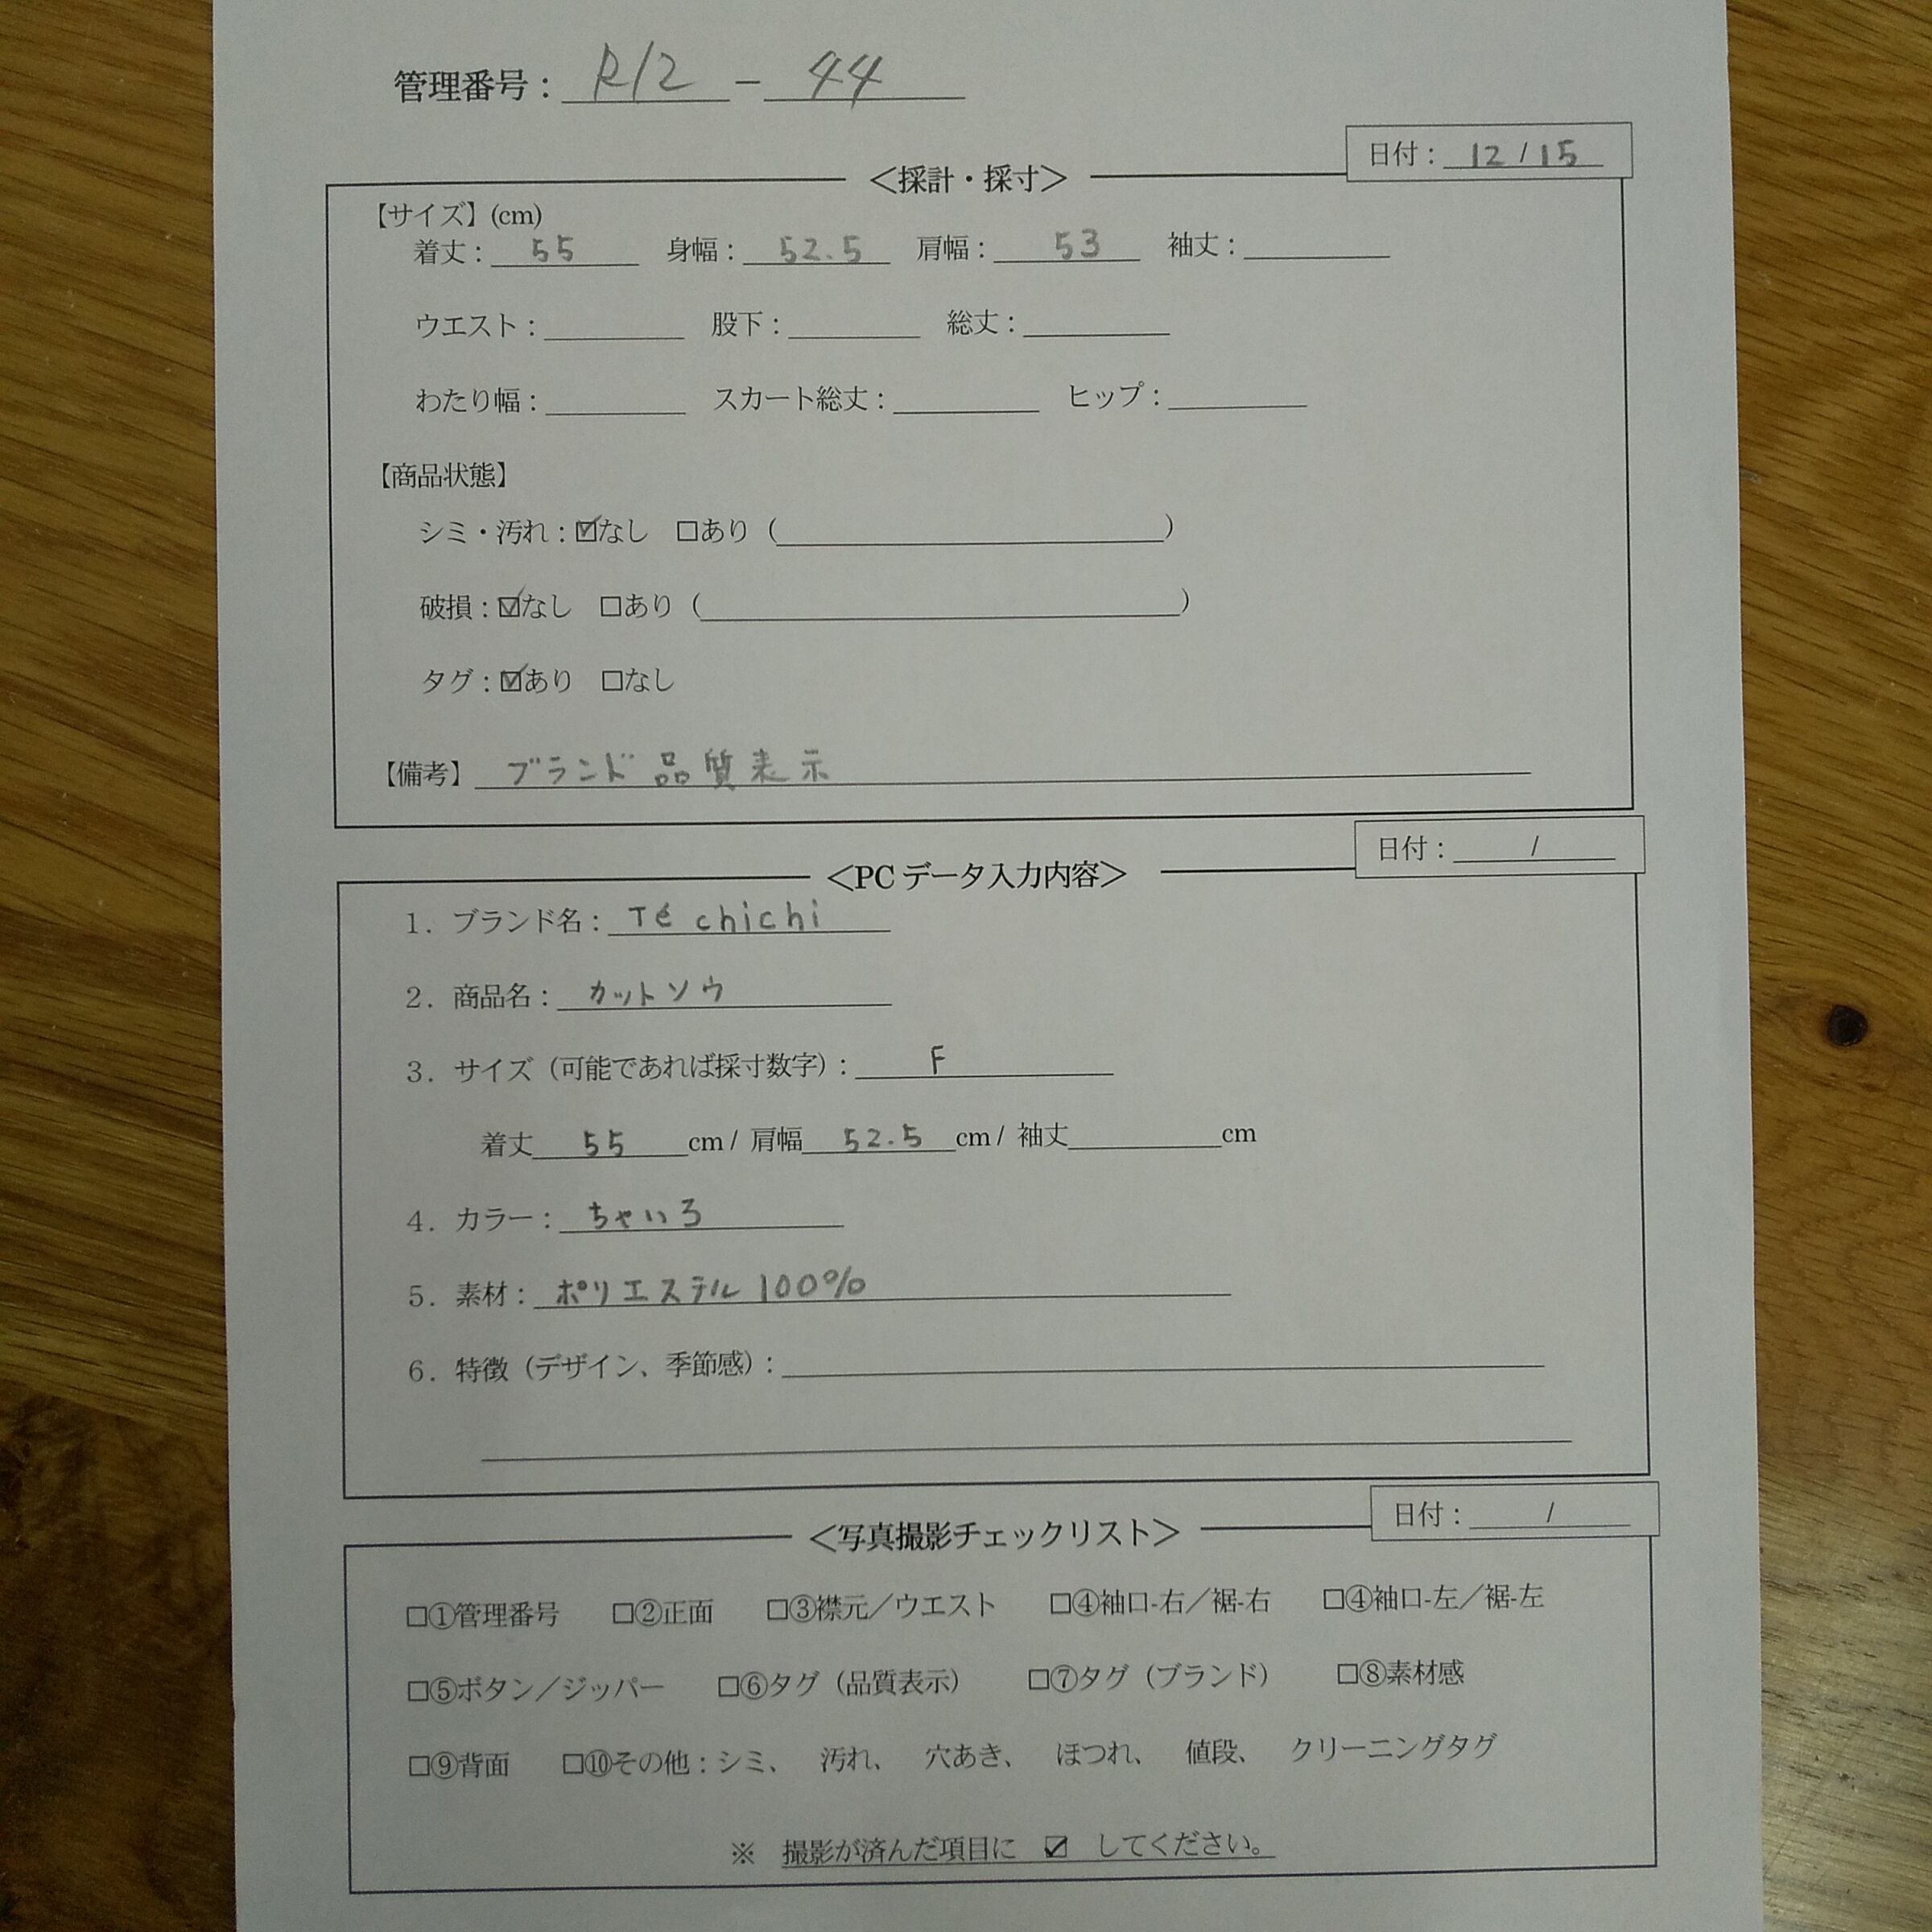 管理番号： R12 - 44
日付： 12 / 15
＜採計・採寸＞
【サイズ】(cm)
着丈： 55 身幅： 52.5 肩幅： 53 袖丈：
ウエスト： 股下： 総丈：
わたり幅： スカート総丈： ヒップ：
【商品状態】
シミ・汚れ：☑なし □あり（ ）
破損：☑なし □あり（ ）
タグ：☑あり □なし
【備考】 ブランド 品質表示
日付： /
＜PCデータ入力内容＞
1．ブランド名： Té chichi
2．商品名： カットソウ
3．サイズ（可能であれば採寸数字）： F
着丈 55 cm / 肩幅 52.5 cm / 袖丈 cm
4．カラー： ちゃいろ
5．素材： ポリエステル 100%
6．特徴（デザイン、季節感）：
日付： /
＜写真撮影チェックリスト＞
□①管理番号 □②正面 □③襟元／ウエスト □④袖口-右／裾-右 □④袖口-左／裾-左
□⑤ボタン／ジッパー □⑥タグ（品質表示） □⑦タグ（ブランド） □⑧素材感
□⑨背面 □⑩その他：シミ、 汚れ、 穴あき、 ほつれ、 値段、 クリーニングタグ
※ 撮影が済んだ項目に ☑ してください。